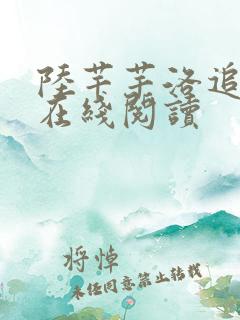 陸芊芊洛追
在綫閱讀
将悼
未经同意禁止转载